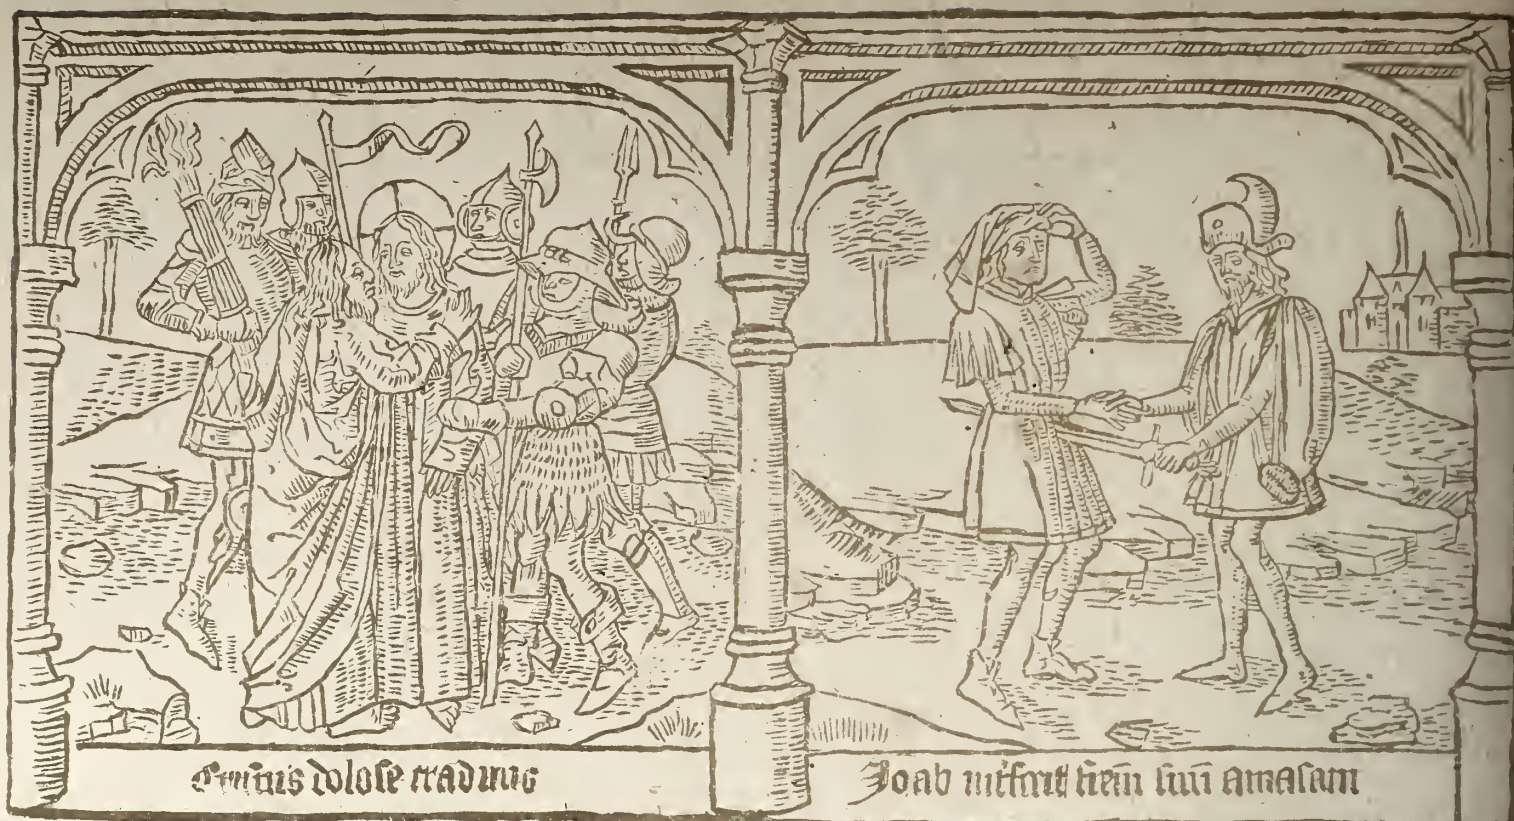 Cristus dolose traditur
Joab int'fecit frēm suū amasam